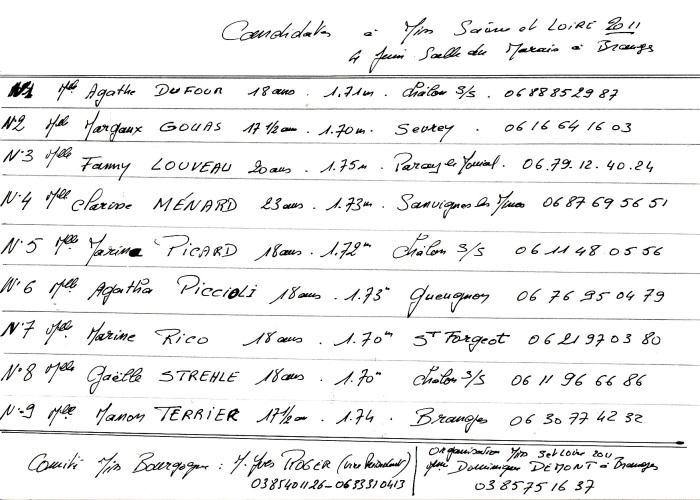 Candidates à Miss Saône et LOIRE 2011
4 Juin Salle du Marais à Branges
N°1 Mlle Agathe DUFOUR 18 ans . 1.71m . Châlon S/S . 06 88 85 29 87
N°2 Mlle Margaux GOUAS 17 1/2 ans . 1.70m . Sevrey . 06 16 64 16 03
N°3 Mlle Fanny LOUVEAU 20 ans . 1.75m . Paray le Monial . 06.79.12.40.24
N°4 Mlle Clarisse MÉNARD 23 ans . 1.73m . Sanvignes les Mines 06 87 69 56 51
N°5 Mlle Marina PICARD 18 ans . 1.72m Châlon S/S 06 11 48 05 56
N°6 Mlle Agatha PICCIOLI 18 ans . 1.73m Gueugnon 06 76 95 04 79
N°7 Mlle Marine RICO 18 ans . 1.70m ST Forgeot 06 21 97 03 80
N°8 Mlle Gaëlle STREHLE 18 ans . 1.70m Châlon S/S 06 11 96 66 86
N°9 Mlle Manon TERRIER 17 1/2 an . 1.74 . Branges 06 30 77 42 32
Comité Miss Bourgogne : M. Yves ROGER (Vice Président)
0385401126 - 0633310413
Organisation Miss S et Loire 2011
Dominique DEMONT à Branges
03 85 75 16 37